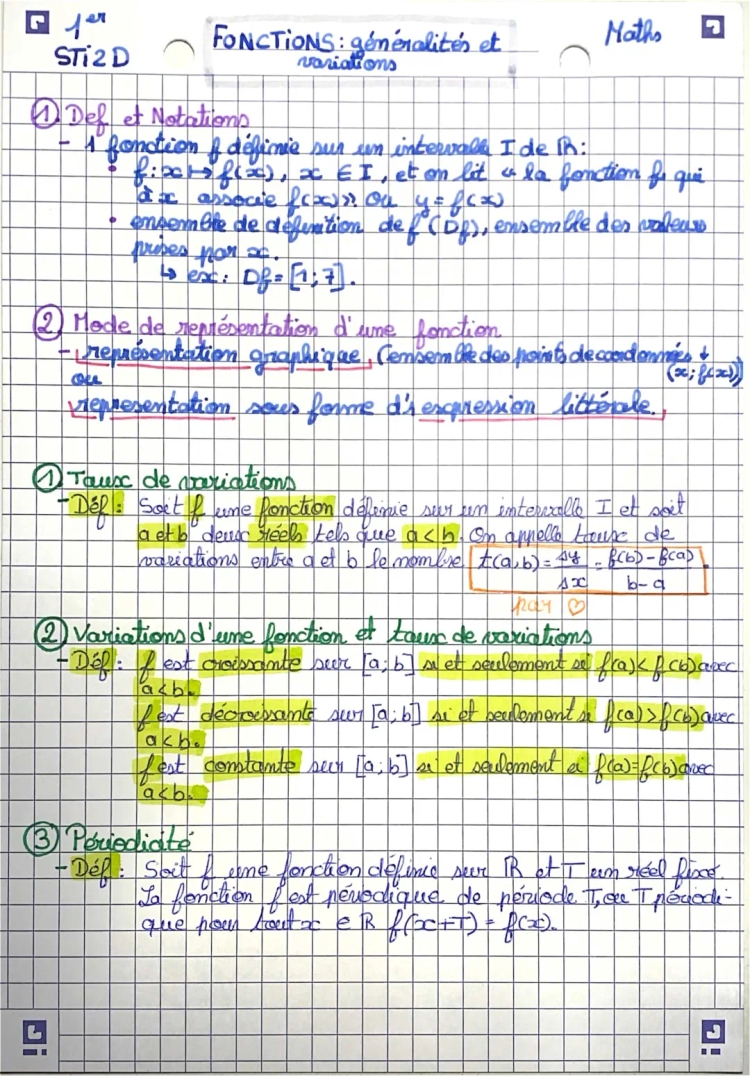 1er
STi2D
FONCTIONS : généralités et
variations
Maths
① Def et Notations
- 1 fonction f définie sur un intervalle I de ℝ :
• f : x ↦ f(x), x ∈ I, et on lit « la fonction f, qui
à x associe f(x) ». Ou y = f(x)
• ensemble de définition de f (Df), ensemble des valeurs
prises par x.
↳ ex : Df = [1 ; 7].
② Mode de représentation d'une fonction
- représentation graphique, (ensemble des points de coordonnées ↓
(x ; f(x)))
ou
représentation sous forme d's expression littérale.
① Taux de variations
- Déf : Soit f une fonction définie sur un intervalle I et soit
a et b deux réels tels que a < b. On appelle taux de
variations entre a et b le nombre t(a,b) = Δy/Δx = f(b) - f(a)/b - a
par ♡
② Variations d'une fonction et taux de variations
- Déf : f est croissante sur [a ; b] si et seulement si f(a) < f(b) avec
a < b.
f est décroissante sur [a ; b] si et seulement si f(a) > f(b) avec
a < b.
f est constante sur [a ; b] si et seulement si f(a) = f(b) avec
a < b.
③ Périodicité
- Déf : Soit f une fonction définie sur ℝ et T un réel fixé.
La fonction f est périodique de période T, ou T périodi-
que pour tout x e ℝ f(x+T) = f(x).